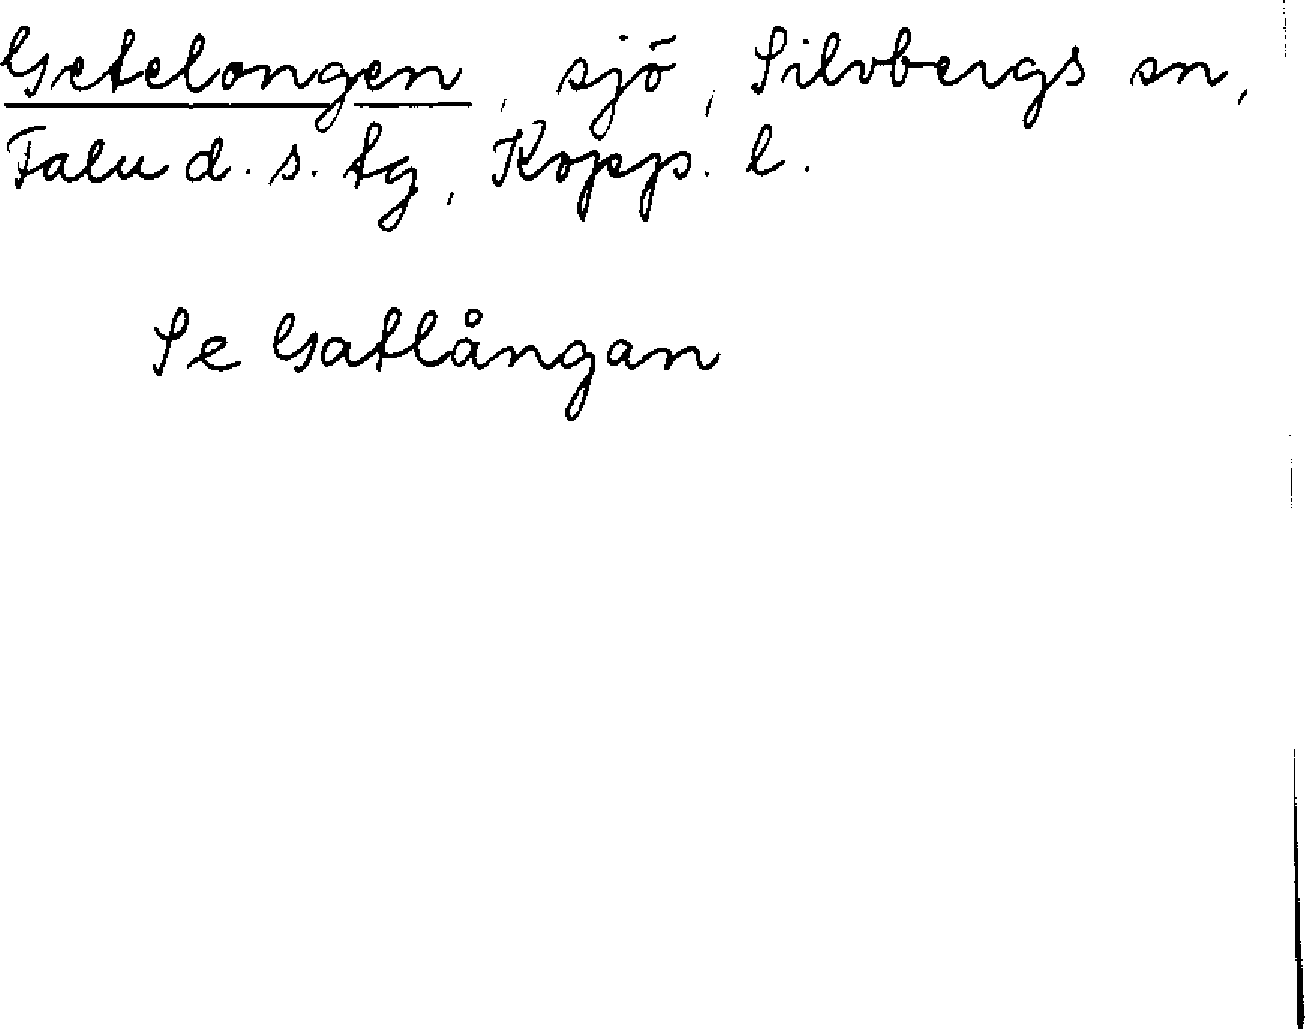 Getelongen, sjö, Silvbergs sn,
Falu d. s. tg, Kopp. l.
Se Gatlången